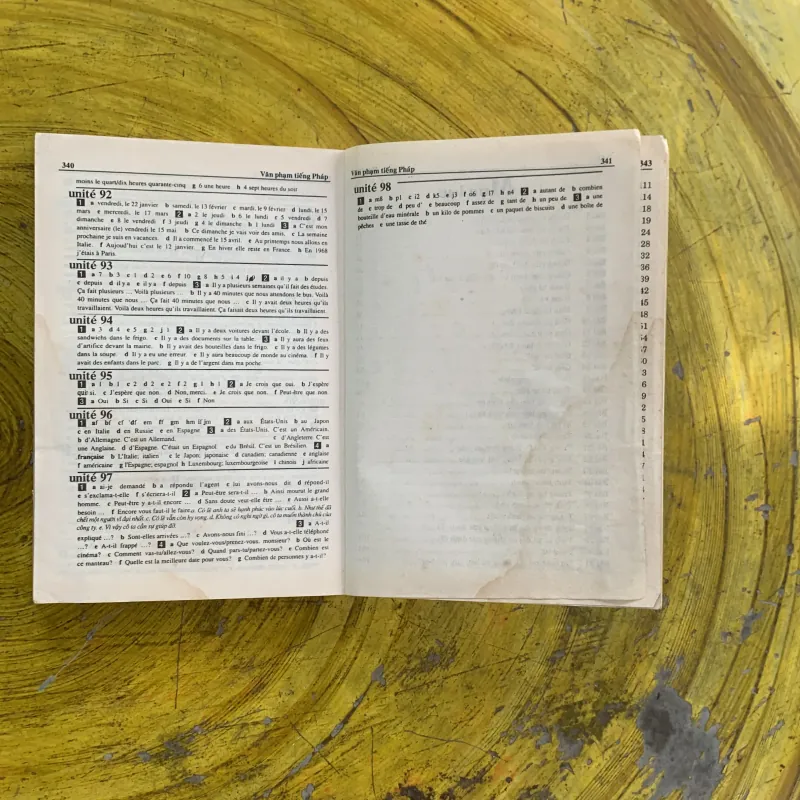 340
Văn phạm tiếng Pháp
moins le quart/dix heures quarante-cinq g 6 une heure h 4 sept heures du soir
unité 92
1 a vendredi, le 22 janvier b samedi, le 13 février c mardi, le 9 février d lundi, le 15
mars e mercredi, le 17 mars 2 a 2 le jeudi b 6 le lundi c 5 vendredi d 7
dimanche e 8 le vendredi f 3 jeudi g 4 le dimanche h 1 lundi 3 a C'est mon
anniversaire (le) vendredi le 15 mai b Ce dimanche je vais voir des amis. c La semaine
prochaine je suis en vacances. d Il a commencé le 15 avril. e Au printemps nous allons en
Italie. f Aujourd'hui c'est le 12 janvier. g En hiver elle reste en France. h En 1968
j'étais à Paris.
unité 93
1 a 7 b 3 c 1 d 2 e 6 f 10 g 8 h 5 i 4 j 9 2 a il y a b depuis
c depuis d il y a e il y a f depuis 3 a Il y a plusieurs semaines qu'il fait des études.
Ça fait plusieurs ... Voilà plusieurs ... b Il y a 40 minutes que nous attendons le bus. Voilà
40 minutes que nous ... Ça fait 40 minutes que nous ... c Il y avait deux heures qu'ils
travaillaient. Voilà deux heures qu'ils travaillaient. Ça faisait deux heures qu'ils travaillaient.
unité 94
1 a 3 d 4 e 5 g 2 j 1 2 a Il y a deux voitures devant l'école. b Il y a des
sandwichs dans le frigo. c Il y a des documents sur la table. 3 a Il y aura des feux
d'artifice devant la mairie. b Il y avait des bouteilles dans le frigo. c Il y a des légumes
dans la soupe. d Il y a eu une erreur. e Il y aura beaucoup de monde au cinéma. f Il y
avait des enfants dans le parc. g Il y a de l'argent dans ma poche.
unité 95
1 a 1 b 1 c 2 d 2 e 2 f 2 g 1 h 1 2 a Je crois que oui. b J'espère
que si. c J'espère que non. d Non, merci. e Je crois que non. f Peut-être que non.
3 a Oui b Si c Si d Oui e Si f Non
unité 96
1 af bf cf df em ff gm hm if jm 2 a aux États-Unis b au Japon
c en Italie d en Russie e en Espagne 3 a des États-Unis. C'est un Américain.
b d'Allemagne. C'est un Allemand. c d'Angleterre. C'est
une Anglaise. d d'Espagne. C'était un Espagnol. e du Brésil. C'est un Brésilien. 4 a
française b L'Italie; italien c le Japon; japonaise d canadien; canadienne e anglaise
f américaine g l'Espagne; espagnol h Luxembourg; luxembourgeoise i chinois j africaine
unité 97
1 a ai-je demandé b a répondu l'agent c lui avons-nous dit d répond-il
e s'exclama-t-elle f s'écriera-t-il 2 a Peut-être sera-t-il ... b Ainsi mourut le grand
homme. c Peut-être y a-t-il encore ... d Sans doute veut-elle être ... e Aussi a-t-elle
besoin ... f Encore vous faut-il le faire.
chết một người vĩ đại nhất. c. Có lẽ vẫn còn hy vọng. d. Không có nghi ngờ gì, cô ta muốn thành chủ của
công ty. e. Vì vậy cô ta cần sự giúp đỡ.
3 a A-t-il
expliqué ...? b Sont-elles arrivées ...? c Avons-nous fini ...? d Vous a-t-elle téléphoné
...? e A-t-il frappé ...? 4 a Que voulez-vous/prenez-vous, monsieur? b Où est le
cinéma? c Comment vas-tu/allez-vous? d Quand pars-tu/partez-vous? e Combien est
ce manteau? f Quelle est la meilleure date pour vous? g Combien de personnes y a-t-il?
Văn phạm tiếng Pháp
341
unité 98
1 a m8 b p1 c i2 d k5 e j3 f o6 g l7 h n4 2 a autant de b combien
de c trop de d peu d' e beaucoup f assez de g tant de h un peu de 3 a une
bouteille d'eau minérale b un kilo de pommes c un paquet de biscuits d une boîte de
pêches e une tasse de thé
343